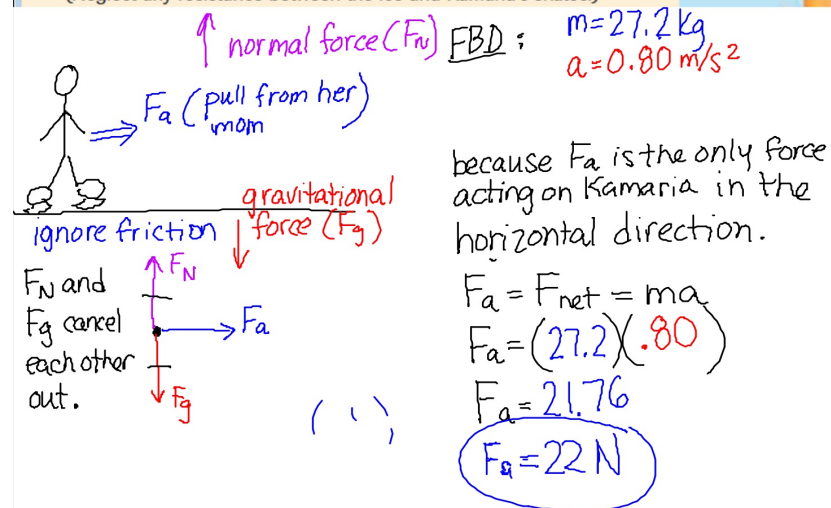 normal force (FN)
FBD:
m=27.2 kg
a=0.80 m/s²
Fa (pull from her
mom)
gravitational
force (Fg)
ignore friction
FN and
Fg cancel
each other
out.
FN
Fa
Fg
because Fa is the only force
acting on Kamaria in the
horizontal direction.
Fa = Fnet = ma
Fa=(27.2)(.80)
Fa=21.76
Fa=22 N